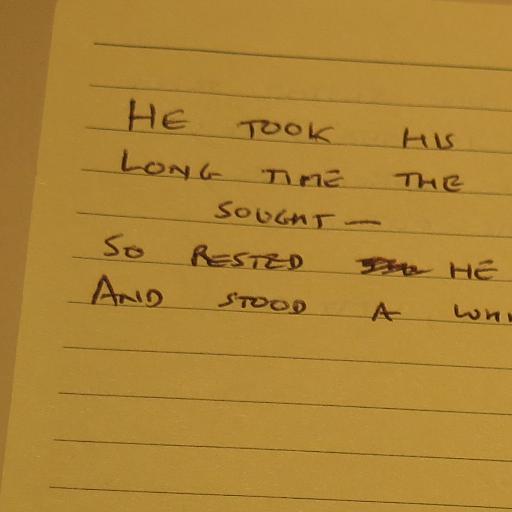 HE TOOK HIS
LONG TIME THE
SOUGHT —
SO RESTED HE
AND STOOD A